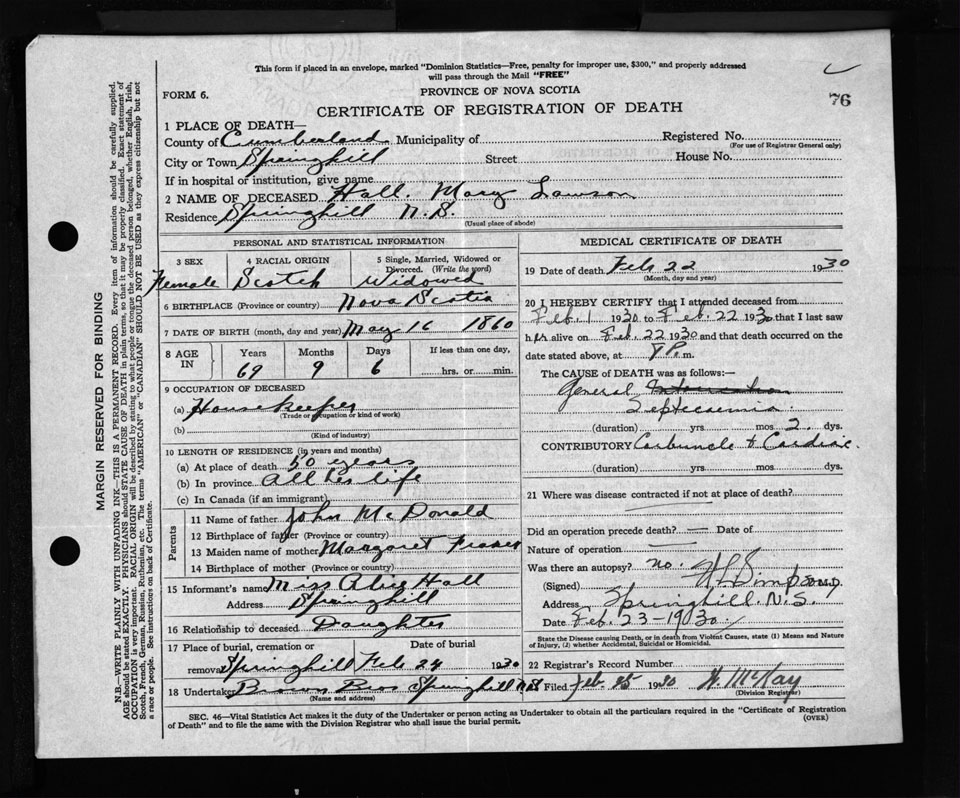 This form if placed in an envelope, marked "Dominion Statistics—Free, penalty for improper use, $300," and properly addressed
will pass through the Mail "FREE"
FORM 6.
PROVINCE OF NOVA SCOTIA
76
CERTIFICATE OF REGISTRATION OF DEATH
1 PLACE OF DEATH—
County of Cumberland Municipality of Registered No.
(For use of Registrar General only)
City or Town Springhill Street House No.
If in hospital or institution, give name
2 NAME OF DECEASED Hall Mary Lawson
Residence Springhill N.S.
(Usual place of abode)
PERSONAL AND STATISTICAL INFORMATION
3 SEX 4 RACIAL ORIGIN 5 Single, Married, Widowed or
Divorced. (Write the word)
Female Scotch Widowed
6 BIRTHPLACE (Province or country) Nova Scotia
7 DATE OF BIRTH (month, day and year) May 16 1860
8 AGE IN Years Months Days If less than one day,
69 9 6 hrs. or min.
9 OCCUPATION OF DECEASED
(a) Housekeeper
(Trade or occupation or kind of work)
(b)
(Kind of industry)
10 LENGTH OF RESIDENCE (in years and months)
(a) At place of death 50 years
(b) In province All her life
(c) In Canada (if an immigrant)
Parents
11 Name of father John McDonald
12 Birthplace of father (Province or country)
13 Maiden name of mother Margaret Fraser
14 Birthplace of mother (Province or country)
15 Informant's name Miss Alice Hall
Address Springhill
16 Relationship to deceased Daughter
17 Place of burial, cremation or Date of burial
removal Springhill Feb 24 1930
18 Undertaker Brown Bros Springhill N.S.
(Name and address)
MEDICAL CERTIFICATE OF DEATH
19 Date of death Feb 22 1930
(Month, day and year)
20 I HEREBY CERTIFY that I attended deceased from
Feb. 1 1930 to Feb. 22 1930 that I last saw
her alive on Feb. 22 1930 and that death occurred on the
date stated above, at 8 P. m.
The CAUSE of DEATH was as follows:—
General
Septecaemia
(duration) yrs mos 2 dys.
CONTRIBUTORY Carbuncle & Cardiac
(duration) yrs mos dys.
21 Where was disease contracted if not at place of death?
Did an operation precede death? — Date of
Nature of operation —
Was there an autopsy? no.
(Signed) Simpson M.D.
Address Springhill. N.S.
Date Feb. 23-1930
State the Disease causing Death, or in death from Violent Causes, state (1) Means and Nature
of Injury, (2) whether Accidental, Suicidal or Homicidal.
22 Registrar's Record Number
Filed Feb. 25 1930 McKay
(Division Registrar)
SEC. 46—Vital Statistics Act makes it the duty of the Undertaker or person acting as Undertaker to obtain all the particulars required in the "Certificate of Registration
of Death" and to file the same with the Division Registrar who shall issue the burial permit.
(OVER)
MARGIN RESERVED FOR BINDING
N.B.—WRITE PLAINLY WITH UNFADING INK—THIS IS A PERMANENT RECORD. Every item of information should be carefully supplied.
AGE should be stated EXACTLY. PHYSICIANS should STATE CAUSE OF DEATH in plain terms, so that it may be properly classified. Exact statement of
OCCUPATION is very important. RACIAL ORIGIN will be described by stating to what people or tongue the deceased person belonged, whether English, Irish,
Scotch, French, German, Russian, Ruthenian, etc. The terms "AMERICAN" or "CANADIAN" SHOULD NOT BE USED as they express citizenship but not
a race or people. See instructions on back of Certificate.